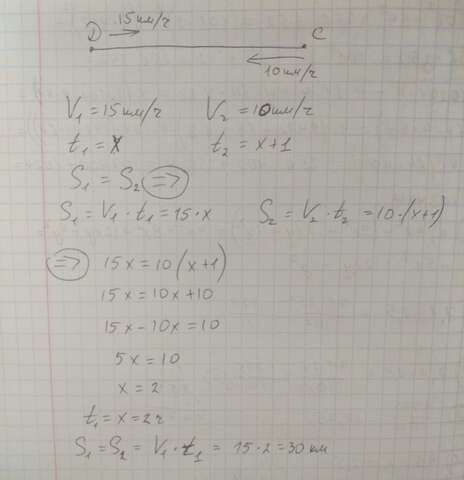 15км/ч
D → C
← 10км/ч
V₁ = 15км/ч V₂ = 10км/ч
t₁ = x t₂ = x+1
S₁ = S₂ =>
S₁ = V₁ · t₁ = 15 · x S₂ = V₂ · t₂ = 10 · (x+1)
=> 15x = 10(x+1)
15x = 10x + 10
15x - 10x = 10
5x = 10
x = 2
t₁ = x = 2ч
S₁ = S₂ = V₁ · t₁ = 15 · 2 = 30 км